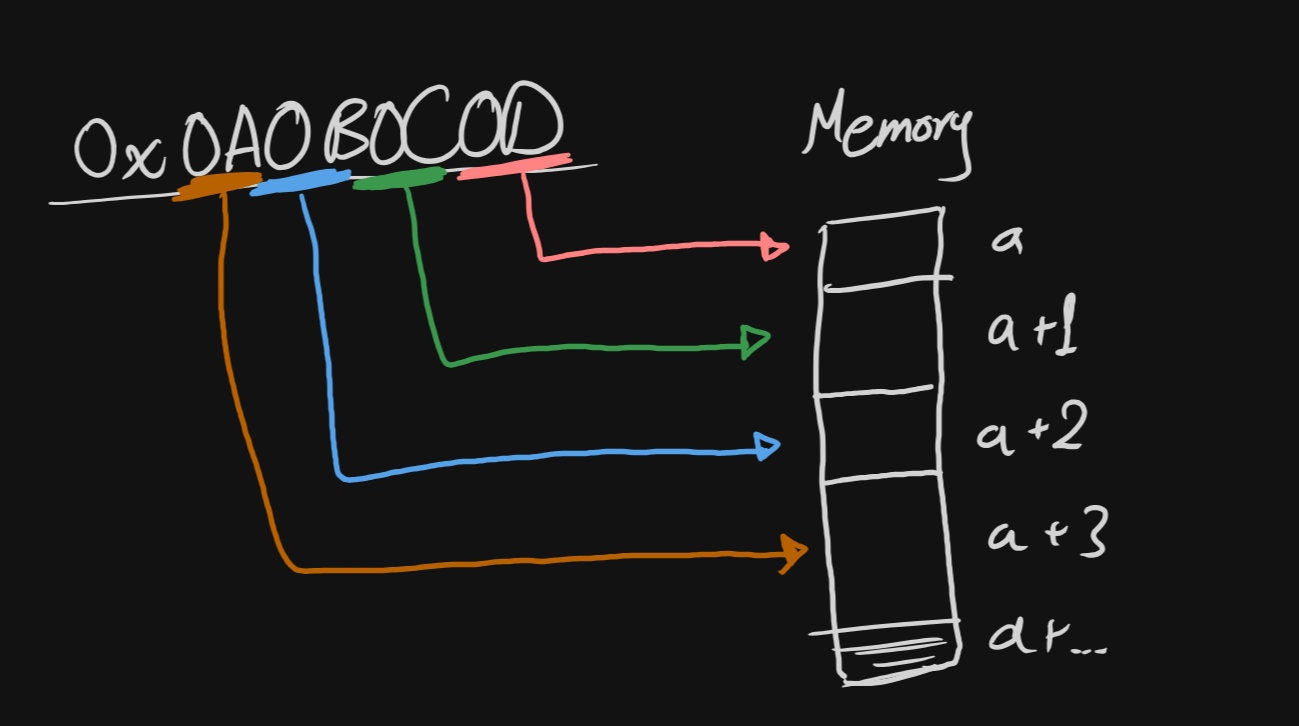 0x0A0B0C0D
Memory
a
a+1
a+2
a+3
a+...